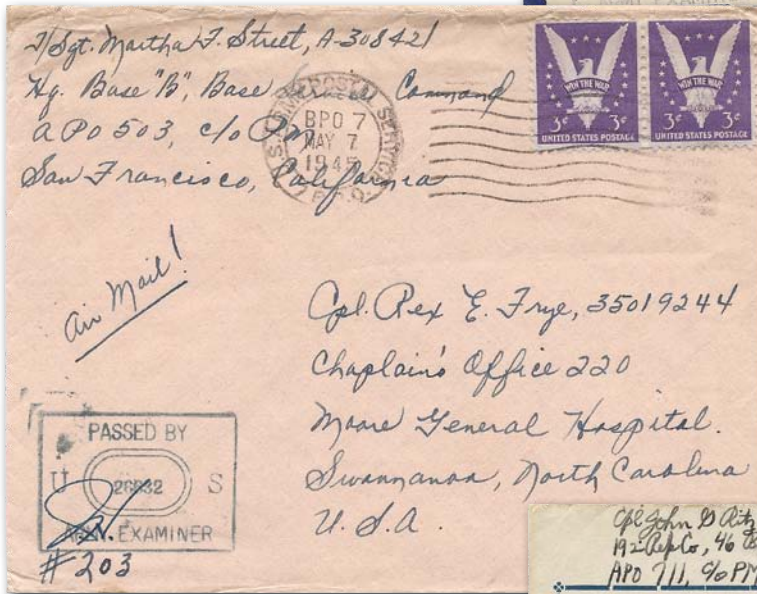 T/Sgt. Martha F. Street, A-308421
Hq. Base "B", Base Command
APO 503, c/o P.M.
San Francisco, California
U.S. ARMY POSTAL SERVICE
BPO 7
MAY 7
1945
WIN THE WAR
3¢ 3¢
UNITED STATES POSTAGE
WIN THE WAR
3¢ 3¢
UNITED STATES POSTAGE
Air Mail!
Cpl. Rex E. Frye, 35019244
Chaplain's Office 220
Moore General Hospital.
Swannanoa, North Carolina
U.S.A.
PASSED BY
U S
ARMY EXAMINER
#203
Cpl John G Ritz
192 Rep Co, 46
APO 711, c/o PM